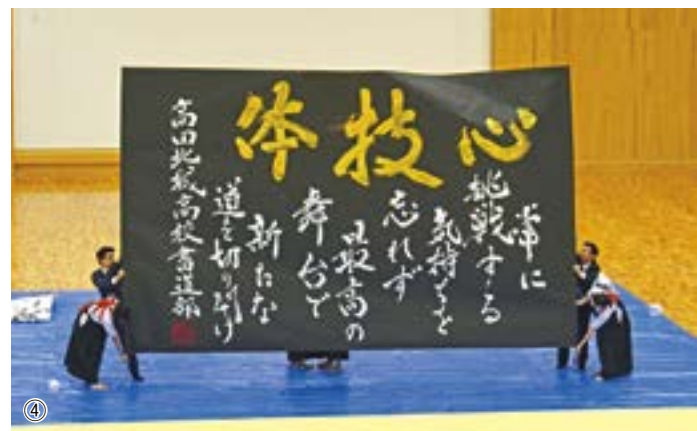 心技体
常に
挑戦する
気持ちを
忘れず
最高の
舞台で
新たな
道を切り開け
高田地域高校書道部
④